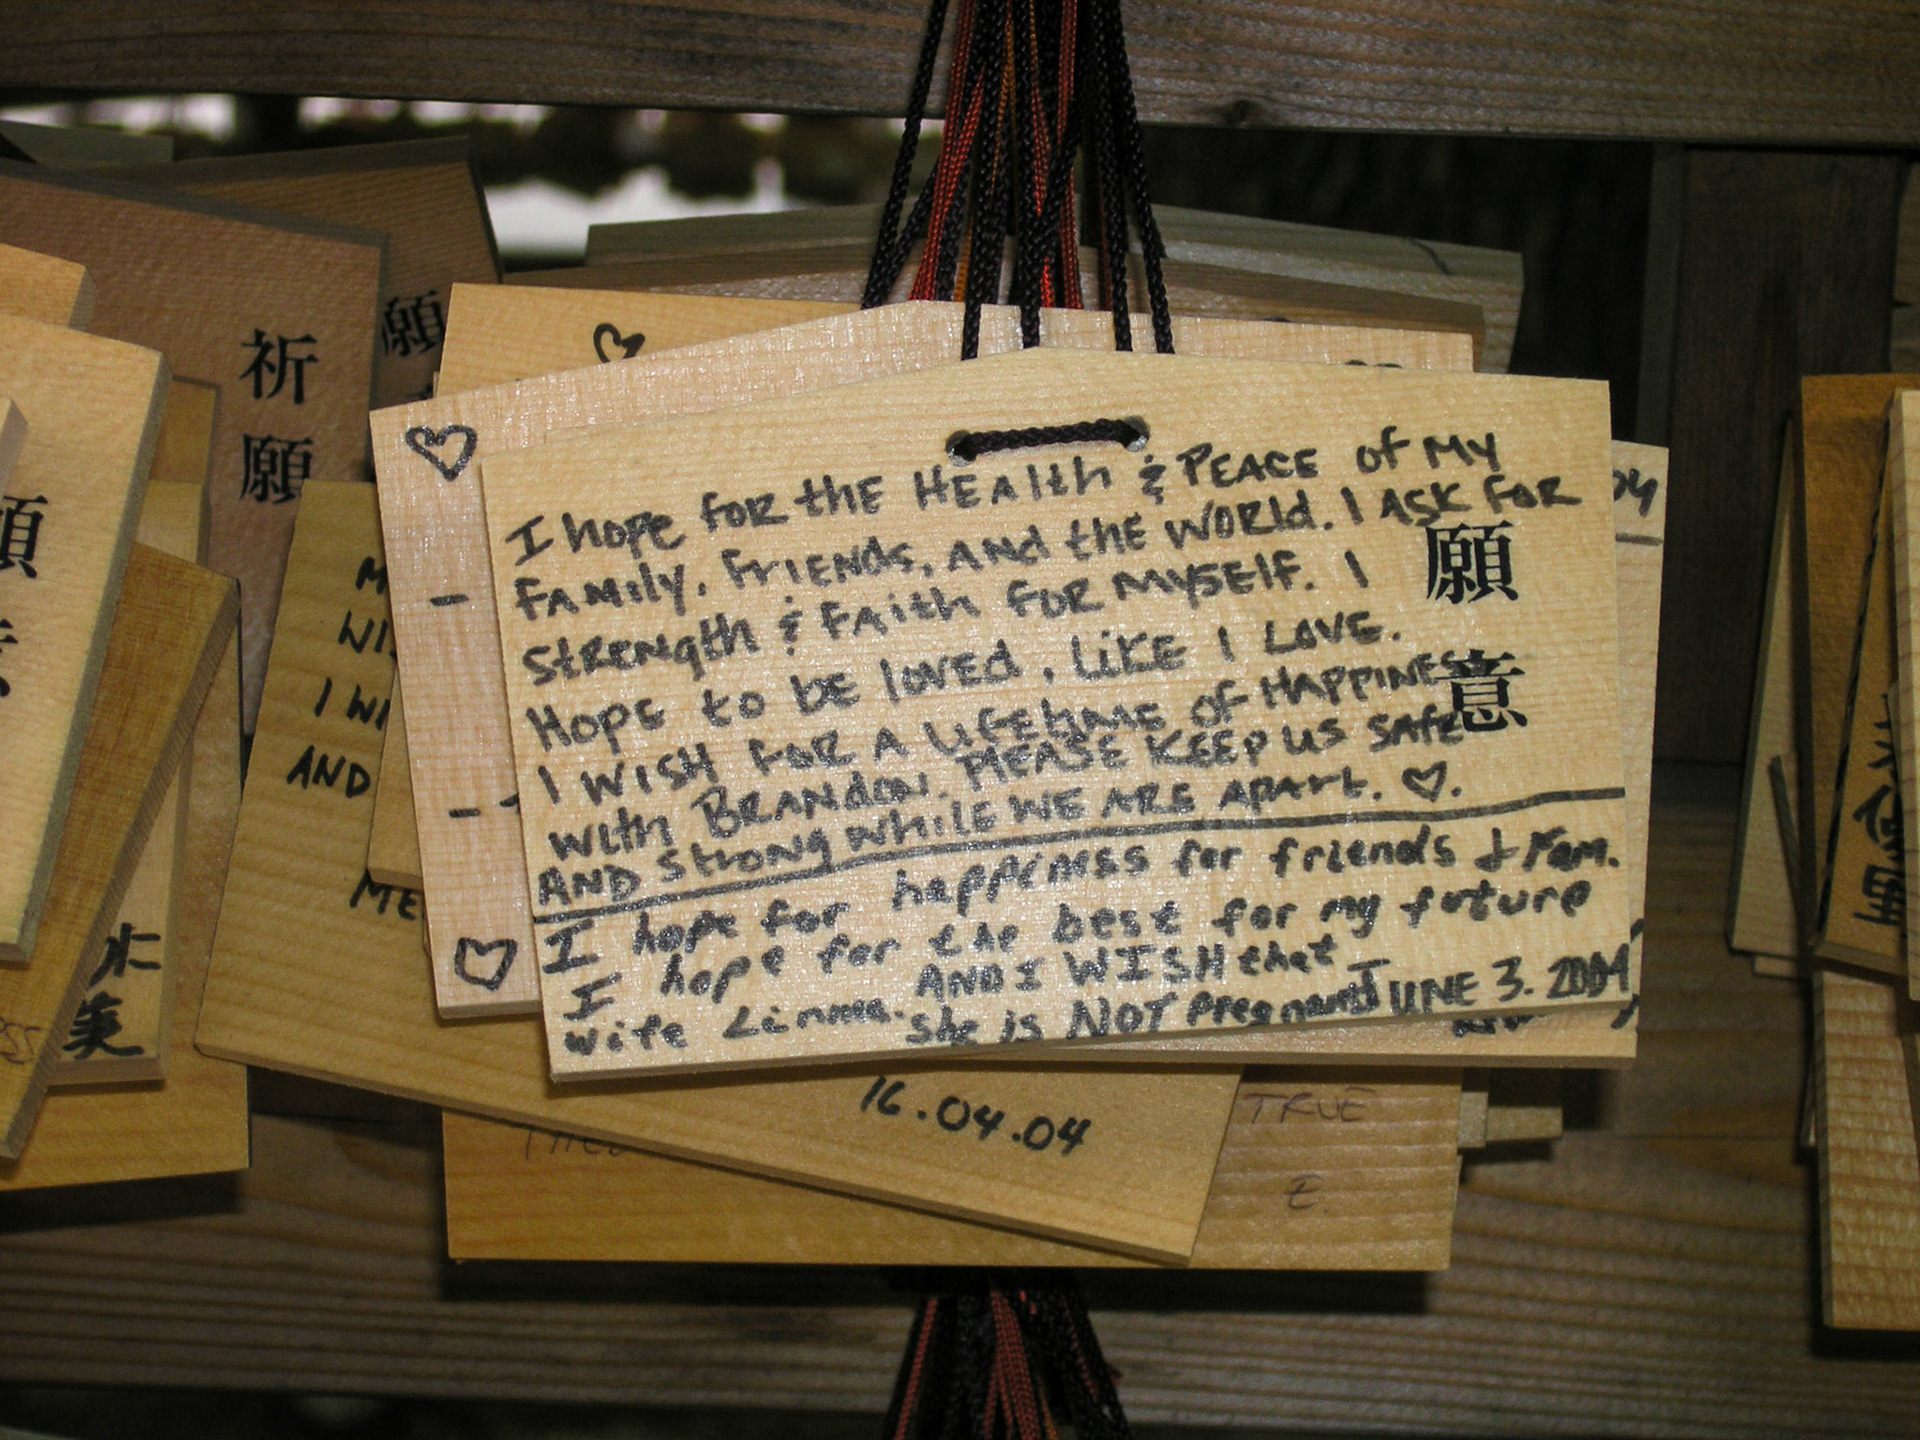 I hope for the Health & Peace of my
Family, Friends, and the World. I ask for
Strength & Faith for myself. I
Hope to be loved, like I love.
I wish for a lifetime of Happiness
with Brandon. Please keep us safe
and strong while we are apart. ♡.
I hope for happiness for friends & Fam.
I hope for the best for my future
wife AND I WISH that
she is NOT pregnant JUNE 3. 2004
願意
祈願
願
願
16.04.04
I WI
AND
ME
04
TRUE
E.
水
美